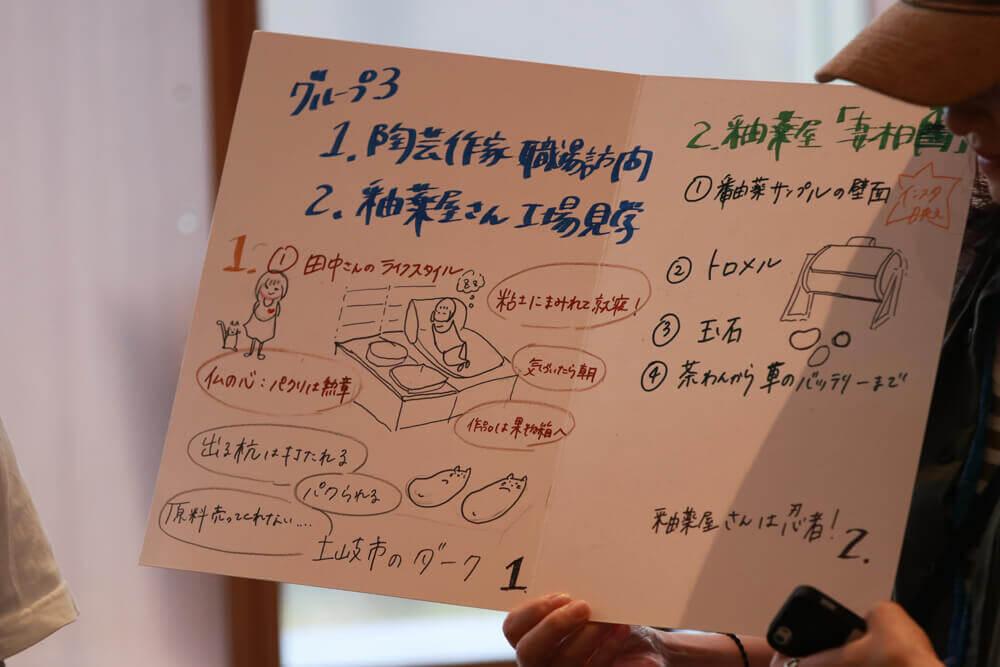 グループ3
1. 陶芸作家 職場訪問
2. 釉薬屋さん 工場見学
1. ① 田中さんのライフスタイル
粘土にまみれて就寝!
気づいたら朝
作品は果物箱へ
仏の心:パクリは勲章
出る杭は打たれる
パクられる
原料売ってくれない....
土岐市のダーク
1.
2. 釉薬屋「妻木
① 釉薬サンプルの壁面
インスタ
映え
② トロメル
③ 玉石
④ 茶わんから車のバッテリーまで
釉薬屋さんは忍者!
2.